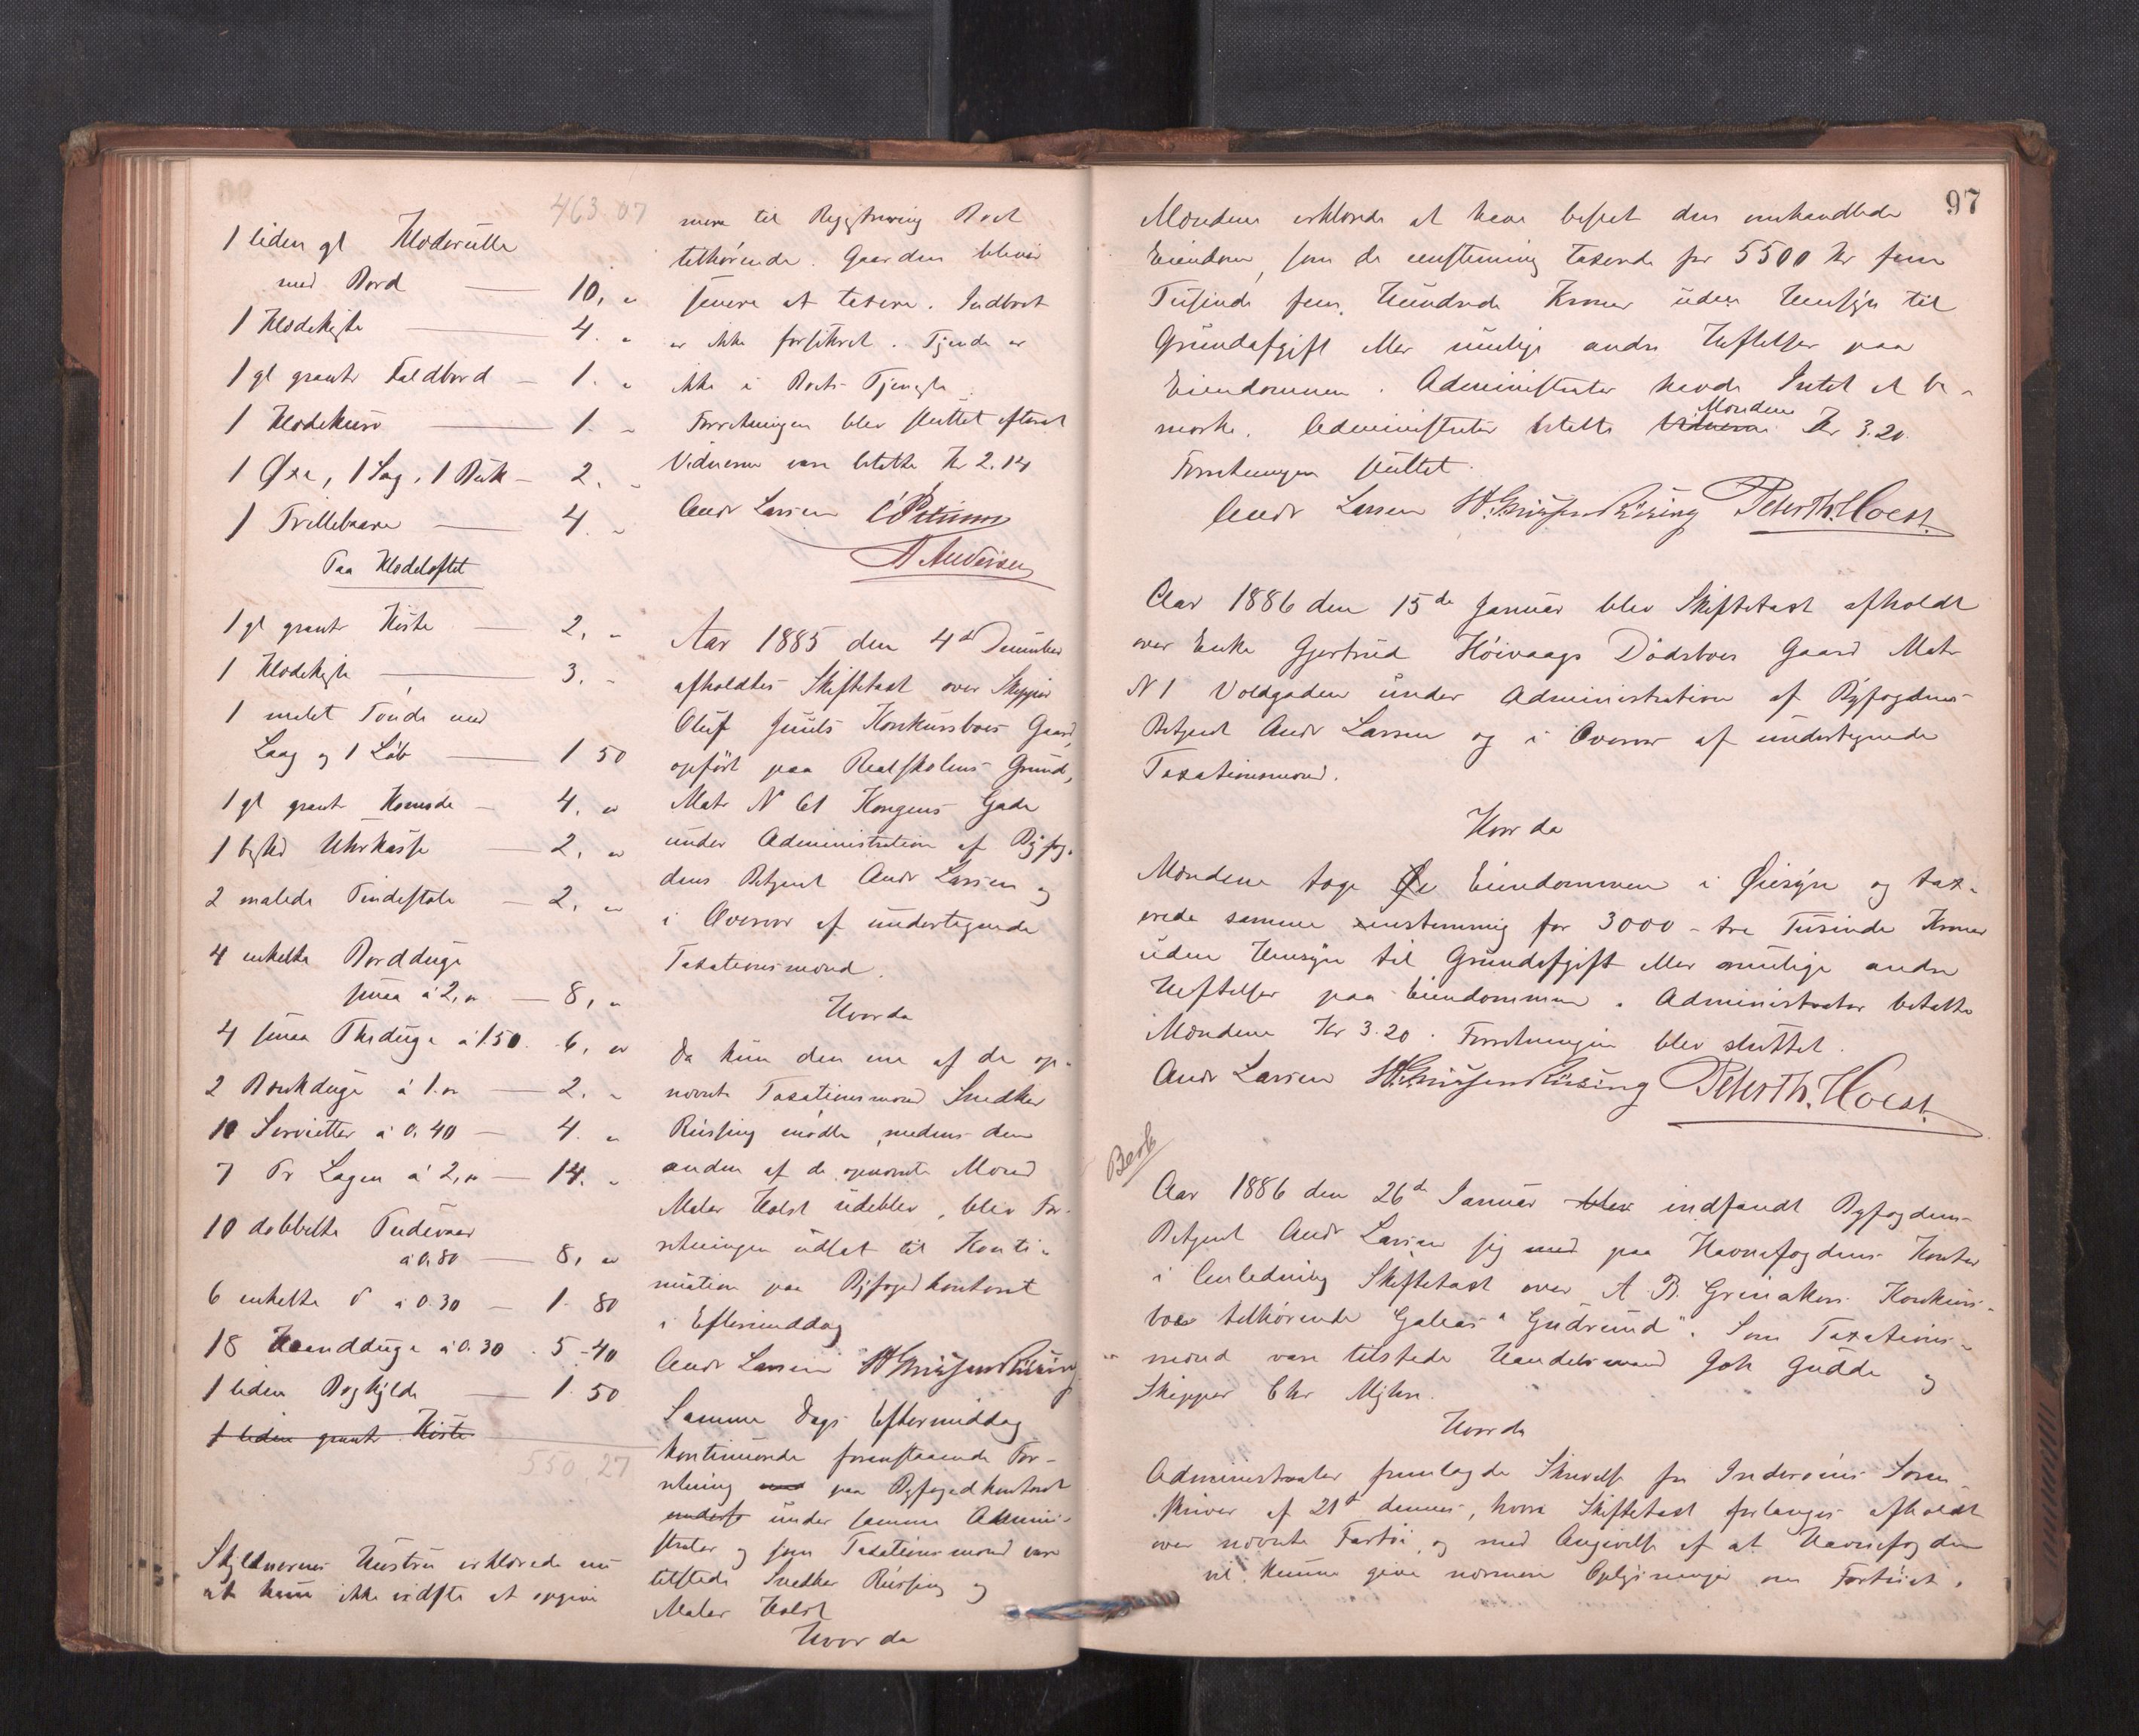 463 07
1 liden gl Klæderulle
med Bord — 10, "
1 Klædekiste — 4. "
1 gl grønt Faldbord — 1. "
1 Klædekurv — 1. "
1 Øxe, 1 Sag, 1 Buk — 2. "
1 Trillebaare — 4. "
Paa Klædeloftet
1 gl grønt Kiste — 2, "
1 Klædekiste — 3. "
1 malet Tønde med
Laag og 1 Løb — 1 50
1 gl grønt Komode — 4. "
1 Uhrkasse — 2. "
2 malede Pindestole — 2. "
4 enkelte Bordduge
smaa á 2, " — 8, "
4 smaa Theduge á 1.50. 6, "
2 Dækduge á 1. " — 2. "
10 Servietter á 0.40 — 4. "
7 Pr Lagen á 2, " — 14. "
10 dobbelte Pudevaar
á 0.80 — 8, "
6 enkelte do á 0.30 — 1. 80
18 Haandduge á 0.30 . 5-40
1 liden Boghylde — 1. 50
1 liden grønt Kiste
550,27
Skyldnerens Hustru erklærede nu
at hun ikke vidste at opgive
mere til Registrering Boet
tilhørende. Gaarden bliver
senere at taxere. Indboet
er ikke forsikret. Tjende er
ikke i Boets Tjeneste.
Forretningen blev sluttet efterat
Vidnerne vare betalte Kr 2.14
Andr Larsen C Petersen
A Andersen
Aar 1885 den 4de December
afholdtes Skiftetaxt over Skipper
Oluf Juuls Konkursboes Gaard,
opført paa Realskolens Grund,
Matr N 61 Kongens Gade
under Administration af Byfog-
dens Betjent Andr Larsen og
i Overvær af undertegnede
Taxationsmænd.
Hvorda
Da kun den ene af de op-
nævnte Taxationsmænd Snedker
Riissing mødte, medens den
anden af de opnævnte Mænd
Maler Holst udeblev, blev For-
retningen udsat til Konti-
nuation paa Byfogedkontoret
i Eftermiddag
Andr Larsen
Samme Dags Eftermiddag
kontinuerede foranstaaende For-
retning med paa Byfogedkontoret
underso under samme Admini-
strator og som Taxationsmænd vare
tilstede Snedker Riissing og
Maler Holst
Hvorda
97
Mændene erklærede at have beseet den omhandlede
Eiendom, som de eenstemmig taxerede for 5500 Kr fem
Tusinde fem Hundrede Kroner uden Hensyn til
Grundafgift eller mulige andre Heftelser paa
Eiendommen. Administrator havde Intet at be-
mærke. Administrator betalte Vidnerne Mændene Kr 3.20.
Forretningen sluttet.
Andr Larsen Peter Th. Hoest.
Aar 1886 den 15de Januar blev Skiftetaxt afholdt
over Enke Gjertrud Høivaags Dødsboes Gaard Matr
N 1 Voldgaden under Administration af Byfogdens
Betjent Andr Larsen og i Overvær af undertegnede
Taxationsmænd.
Hvorda
Mændene toge Øi Eiendommen i Øiesyn og tax-
erede samme eenstemmig for 3000 - tre Tusinde Kroner
uden Hensyn til Grundafgift eller mulige andre
Heftelser paa Eiendommen. Administrator betalte
Mændene Kr 3.20. Forretningen blev sluttet.
Andr Larsen Peter Th. Hoest.
Besk
Aar 1886 den 26de Januar blev indfandt Byfogdens
Betjent Andr Larsen sig med paa Havnefogdens Kontor
i Anledning Skiftetaxt over A. B. Grinakers Konkurs-
boes tilhørende Galeas "Gudrund". Som Taxations-
mænd vare tilstede Handelsmand Joh Gudde og
Skipper Chr
Hvorda
Administrator fremlagde Skrivelse fra Inderøens Soren-
skriver af 21de dennes, hvori Skiftetaxt forlanges afholdt
over nævnte Fartøi, og med Angivelse af at Havnefogden
vil kunne give nærmere Oplysninger om Fartøiet.